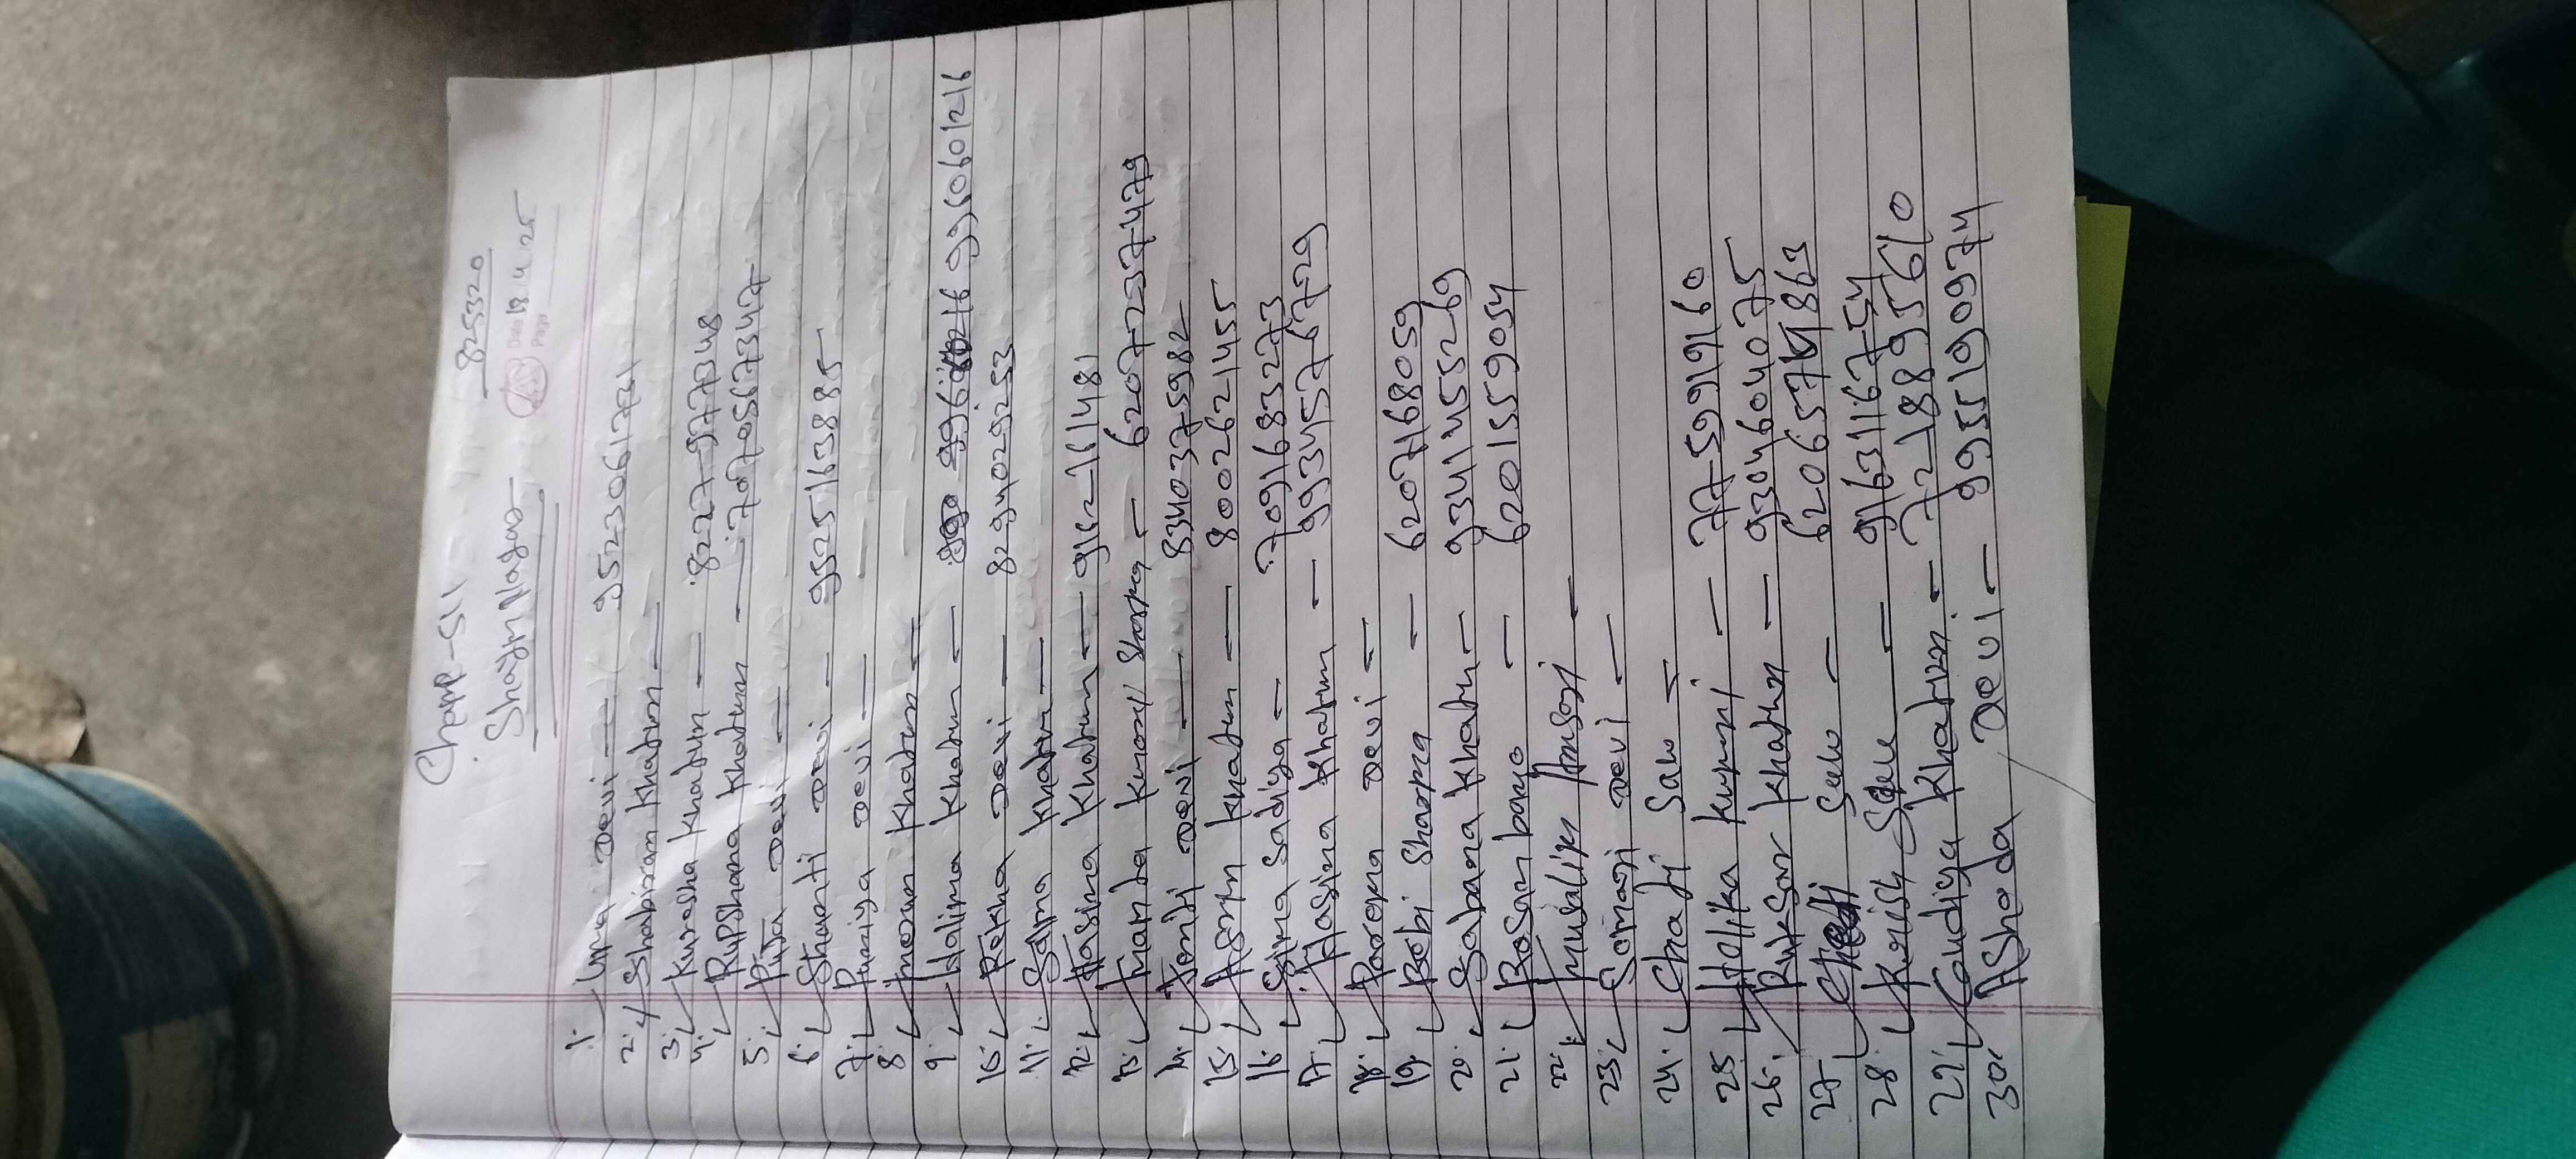 825320
Date 18.4.25
Page
Shayam Nagar
1. Uma Devi — 9523061731
2. Shabiram Khatun —
3. Kuresha Khatun — 8227977348
4. Rupshana Khatun — 7070567347
5. Puja Devi —
6. Shanti Devi — 9525163885
7. Puniya Devi —
8. Khatun —
9. Halima Khatun — 9960601216
10. Rekha Devi — 8294029253
11. Salma Khatun —
12. Hasina Khatun — 9162161481
13. Kumari Sharma — 6207237479
14. Devi — 8340375982
15. Khatun — 8002621455
16. Sima Sadiya — 7091683273
17. Hasina Khatun — 9934576729
18. Devi —
19. Bebi Sharma — 6207168059
20. Sabana Khatun — 9341455269
21. Bosan bano — 6201559054
22. Ansari —
23. Devi —
24. Saw —
25. Holika Kumari — 775991960
26. Ruksar Khatun — 9304604075
27. Saw — 6206574863
28. Saw — 9163116754
29. Khatun — 7218895610
30. AShoda Devi — 9955190974